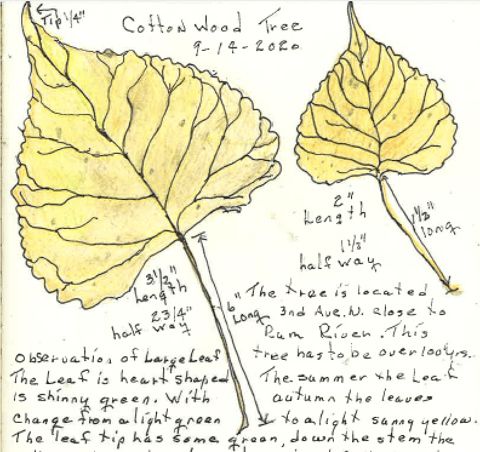 Tip 1/4"
Cotton Wood Tree
9-14-2020
2"
Length
1 1/2"
long
half way
3 1/2"
Length
2 3/4"
half way
6"
Long
The tree is located
3rd Ave. N. close to
Rum River. This
tree has to be over 100 yrs.
Observation of Large Leaf
The Leaf is heart shaped
is shinny green. With
change from a light green
The summer the Leaf
autumn the leaves
to a light sunny yellow.
The leaf tip has some green, down the stem the